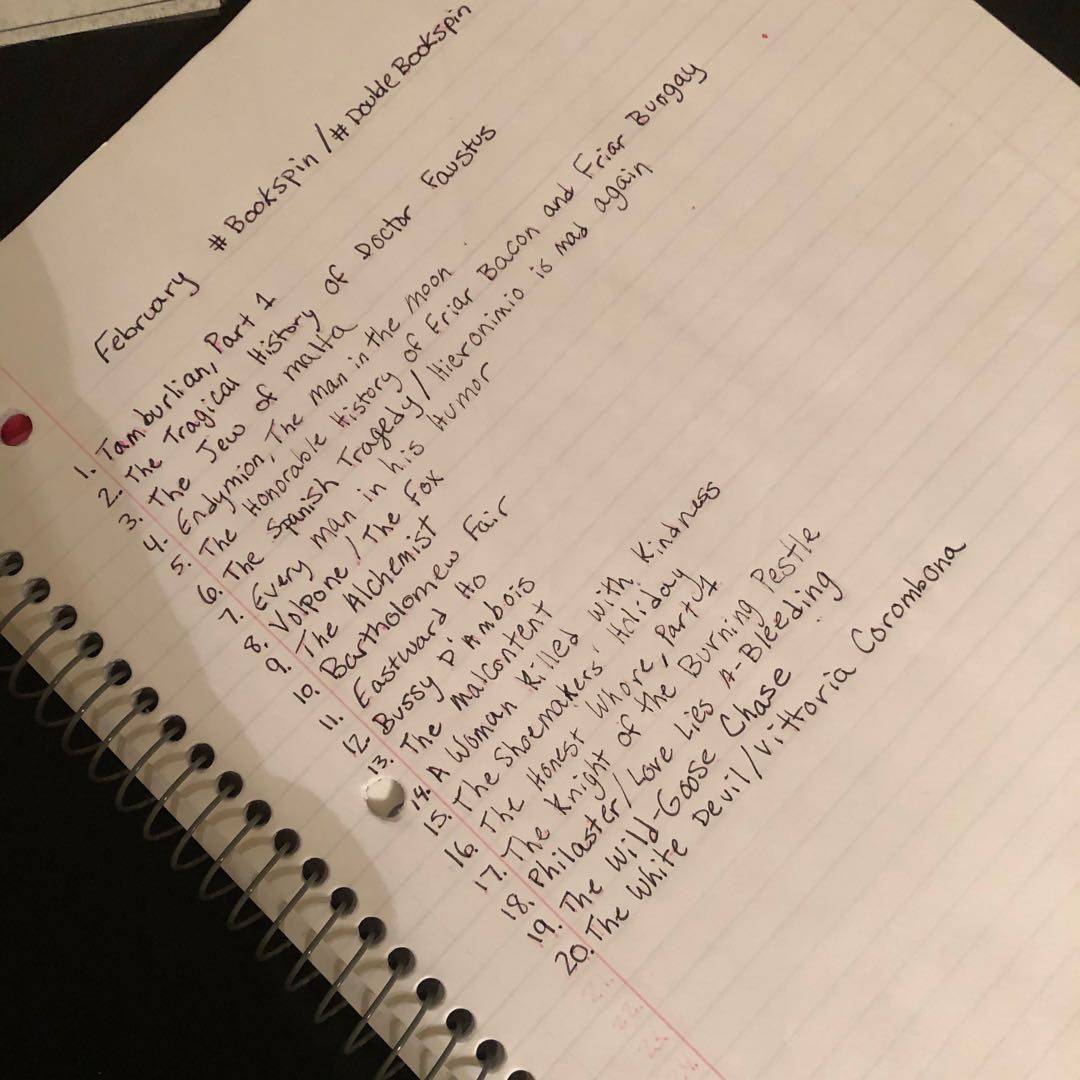 February #Bookspin/#DoubleBookspin
1. Tamburlian, Part 1
2. The Tragical History of Doctor Faustus
3. The Jew of malta
4. Endymion, The man in the moon
5. The Honorable History of Friar Bacon and Friar Bungay
6. The Spanish Tragedy/Hieronimio is mad again
7. Every man in his Humor
8. Volpone/The Fox
9. The Alchemist
10. Bartholomew Fair
11. Eastward Ho
12 Bussy D'Ambois
13. The malcontent
14. A Woman Killed with Kindness
15. The Shoemakers' Holiday
16. The Honest Whore, Part 1
17. The Knight of the Burning Pestle
18. Philaster/Love Lies A-Bleeding
19. The Wild-Goose Chase
20. The White Devil/Vittoria Corombona